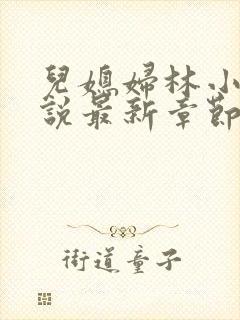 兒媳婦林小
說最新章節
街道童子